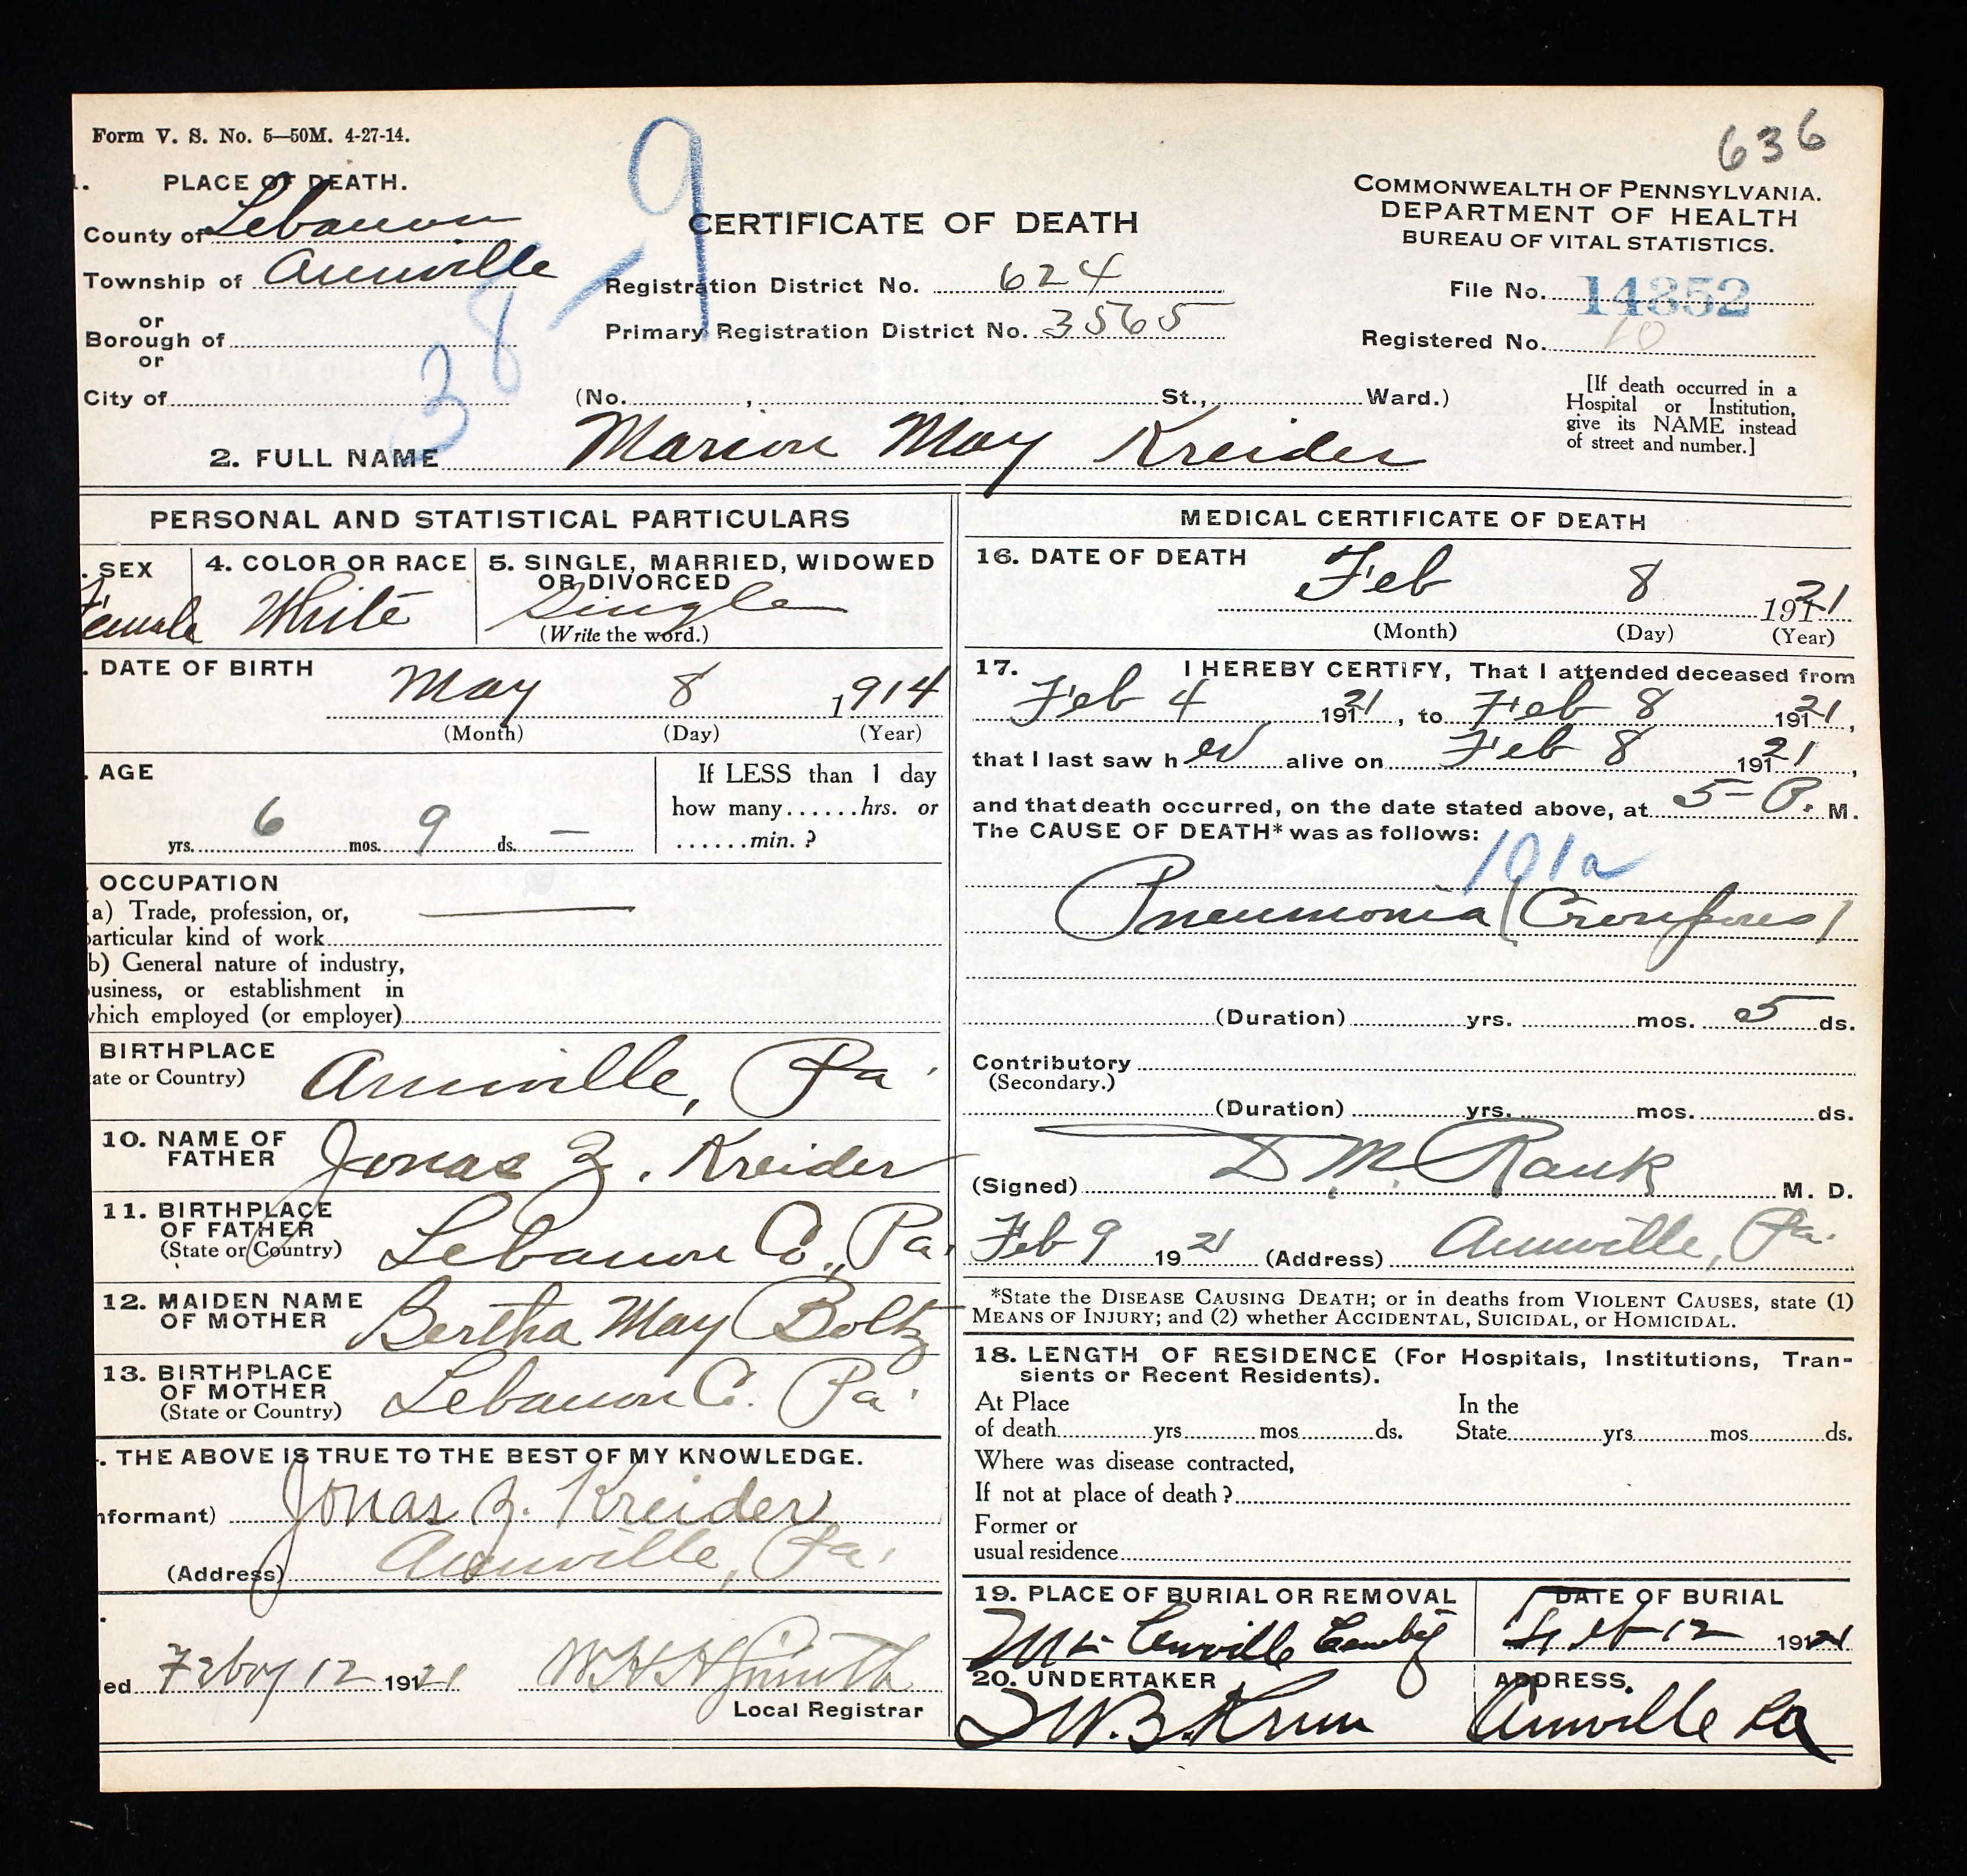 636
Form V. S. No. 5—50M. 4-27-14.
1. PLACE OF DEATH.
County of Lebanon
Township of Annville
or
Borough of
or
City of
38-9
CERTIFICATE OF DEATH
Registration District No. 624
Primary Registration District No. 3565
(No. , St., Ward.)
COMMONWEALTH OF PENNSYLVANIA.
DEPARTMENT OF HEALTH
BUREAU OF VITAL STATISTICS.
File No. 14352
Registered No. 10
[If death occurred in a
Hospital or Institution,
give its NAME instead
of street and number.]
2. FULL NAME Marion May Kreider
PERSONAL AND STATISTICAL PARTICULARS
. SEX
Female
4. COLOR OR RACE
White
5. SINGLE, MARRIED, WIDOWED
OR DIVORCED
Single
(Write the word.)
. DATE OF BIRTH
May 8 1914
(Month) (Day) (Year)
. AGE
6 yrs. 9 mos. — ds.
If LESS than 1 day
how many......hrs. or
......min. ?
. OCCUPATION
(a) Trade, profession, or,
particular kind of work
b) General nature of industry,
business, or establishment in
which employed (or employer)
BIRTHPLACE
ate or Country)
Annville, Pa.
10. NAME OF
FATHER
Jonas Z. Kreider
11. BIRTHPLACE
OF FATHER
(State or Country)
Lebanon Co., Pa.
12. MAIDEN NAME
OF MOTHER
Bertha May Boltz
13. BIRTHPLACE
OF MOTHER
(State or Country)
Lebanon C. Pa.
. THE ABOVE IS TRUE TO THE BEST OF MY KNOWLEDGE.
nformant) Jonas Z. Kreider
(Address) Annville, Pa.
.
ed Feby 12 1921 W H H Smith
Local Registrar
MEDICAL CERTIFICATE OF DEATH
16. DATE OF DEATH
Feb 8 1921
(Month) (Day) (Year)
17. I HEREBY CERTIFY, That I attended deceased from
Feb 4 1921, to Feb 8 1921,
that I last saw her alive on Feb 8 1921,
and that death occurred, on the date stated above, at 5- P. M.
The CAUSE OF DEATH* was as follows:
101a
Pneumonia (Croupous)
(Duration) yrs. mos. 5 ds.
Contributory
(Secondary.)
(Duration) yrs. mos. ds.
(Signed) D. M. Rank M. D.
Feb 9 1921 (Address) Annville, Pa.
*State the DISEASE CAUSING DEATH; or in deaths from VIOLENT CAUSES, state (1)
MEANS OF INJURY; and (2) whether ACCIDENTAL, SUICIDAL, or HOMICIDAL.
18. LENGTH OF RESIDENCE (For Hospitals, Institutions, Tran-
sients or Recent Residents).
At Place
of death yrs mos ds.
In the
State yrs mos ds.
Where was disease contracted,
If not at place of death?
Former or
usual residence
19. PLACE OF BURIAL OR REMOVAL
Mt Annville
DATE OF BURIAL
Feb 12 1921
20. UNDERTAKER
W. B. Krum
ADDRESS.
Annville Pa